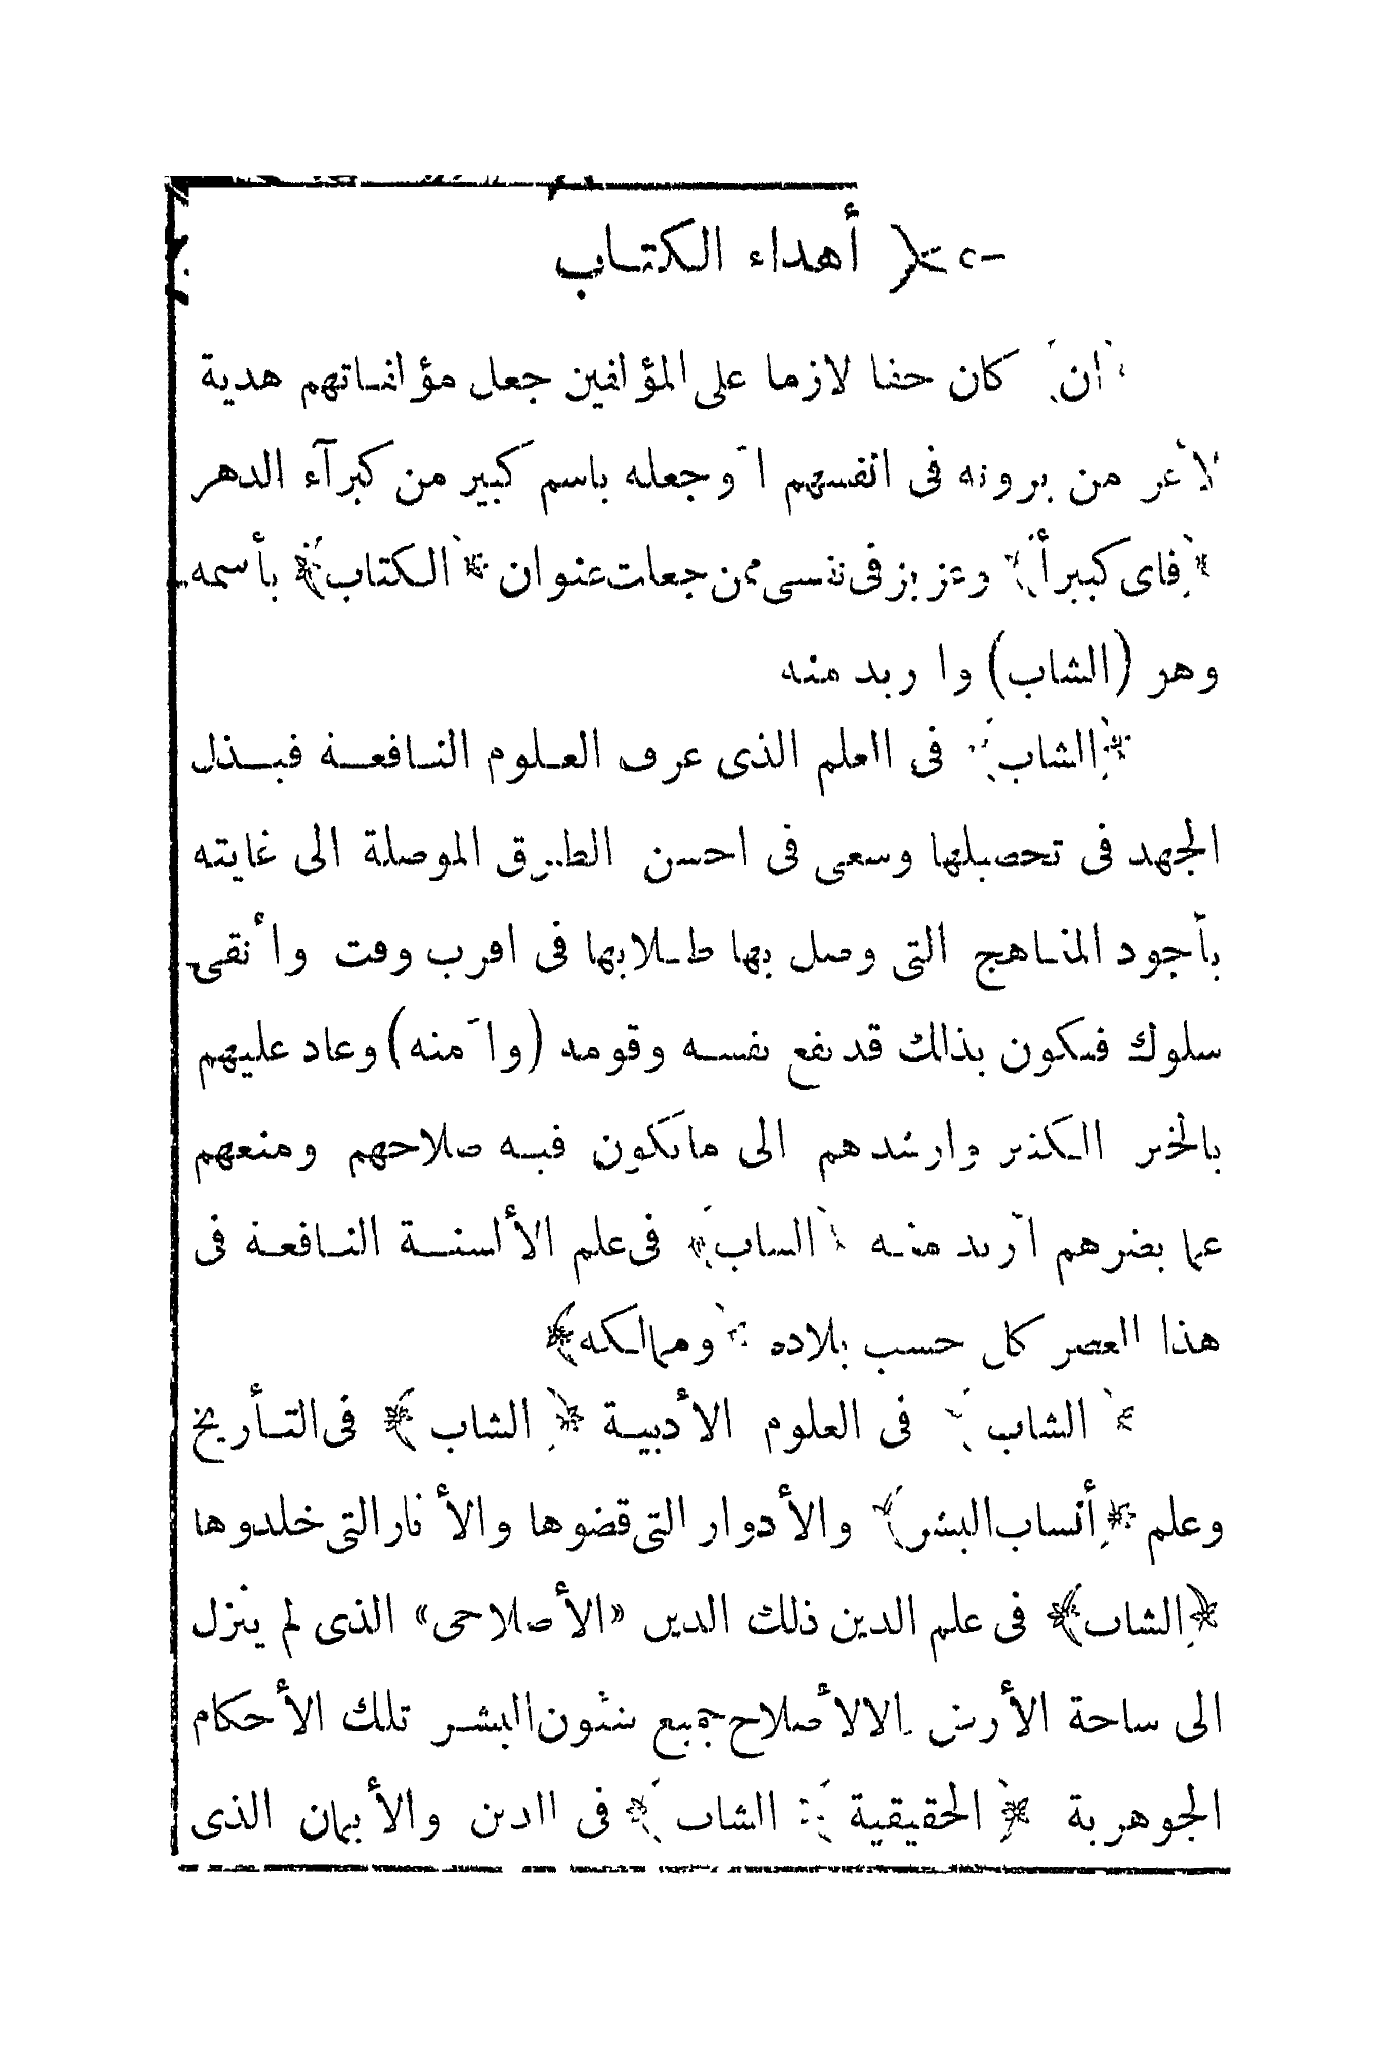 أهداء الكتاب
﴿ان﴾ كان حقا لازما على المؤلفين جعل مؤلفاتهم هدية
لأعز من يرونه فى انفسهم أو جعله باسم كبير من كبرآء الدهر
﴿فاى كبيرأ﴾ وعزيز فى نفسى ممن جعلت عنوان ﴿الكتاب﴾ بأسمه
وهو (الشاب) واريد منه
﴿الشاب﴾ فى العلم الذى عرف العلوم النافعة فبذل
الجهد فى تحصيلها وسعى فى احسن الطرق الموصلة الى غايته
بأجود المناهج التى وصل بها طلابها فى اقرب وقت وأنقى
سلوك فيكون بذالك قد نفع نفسه وقومه (وأمنه) وعاد عليهم
بالخير الكثير وارشدهم الى مايكون فيه صلاحهم ومنعهم
عما يضرهم أريد منه ﴿الشاب﴾ فى علم الألسنة النافعة فى
هذا العصر كل حسب بلاده ﴿وممالكه﴾
﴿الشاب﴾ فى العلوم الأدبية ﴿الشاب﴾ فى التأريخ
وعلم ﴿أنساب البشر﴾ والأدوار التى قضوها والأثار التى خلدوها
﴿الشاب﴾ فى علم الدين ذلك الدين «الأصلاحى» الذى لم ينزل
الى ساحة الأرض الالأصلاح جميع شئون البشر تلك الأحكام
الجوهرية ﴿الحقيقية﴾ الشاب﴾ فى الدين والأيمان الذى